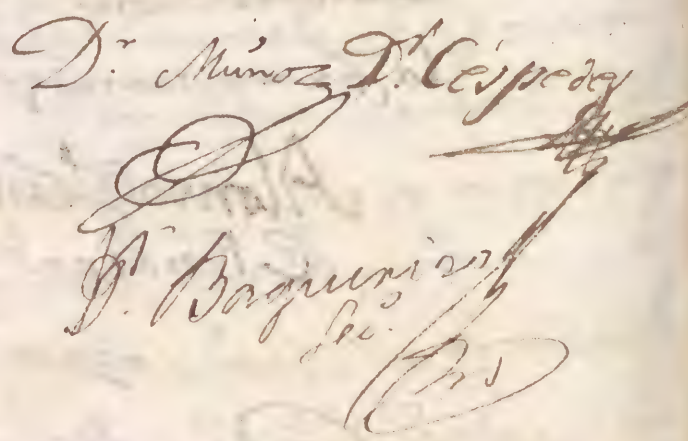 Dr. Muñoz Dr. Céspedes
Dr. Baqueriro
Sec.o